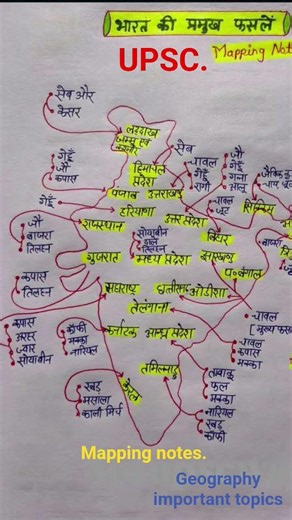 भारत की प्रमुख फसलें
Mapping Not
UPSC.
सेब और
केसर
लद्दाख
जम्मू एवं
कश्मीर
सेब
हिमाचल
प्रदेश
गेहूँ
जौ
कपास
चावल
गेहूँ
रागी
जौ
गेहूँ
गन्ना
आलू
पंजाब
उत्तराखण्ड
गेहूँ
हरियाणा
उत्तर प्रदेश
चावल
जूट
सिक्किम
राजस्थान
बिहार
जौ
बाजरा
तिलहन
सोयाबीन
दालें
तिलहन
गुजरात
मध्य प्रदेश
झारखण्ड
प० बंगाल
कपास
तिलहन
महाराष्ट्र
छत्तीसगढ़
ओडीशा
तेलंगाना
चावल
[मुख्य फस
कपास
अरहर
ज्वार
सोयाबीन
कॉफी
मक्का
नारियल
कर्नाटक
आन्ध्र प्रदेश
चावल
कपास
मक्का
तमिलनाडु
तम्बाकू
फल
मक्का
रबड़
मसाला
काली मिर्च
केरल
नारियल
रबड़
कॉफी
Mapping notes.
Geography
important topics